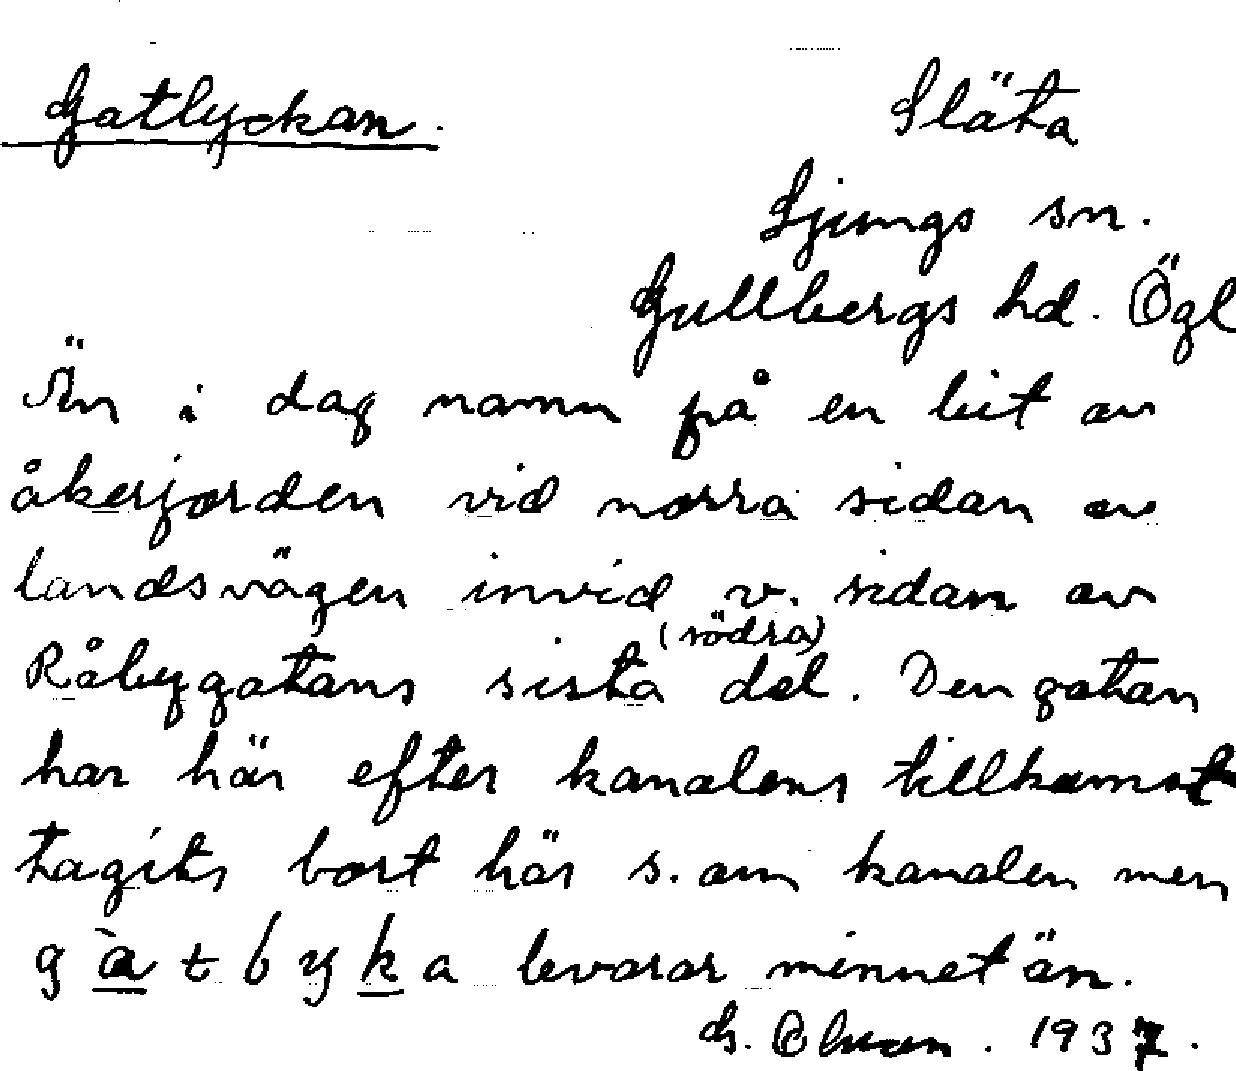 Gatlyckan. Släta
Ljungs sn.
Gullbergs hd. Ögl
Än i dag namn på en bit av
åkerjorden vid norra sidan av
landsvägen invid v. sidan av
(södra)
Råbygatans sista del. Den gatan
har här efter kanalens tillkomst
tagits bort här s. om kanalen men
gàtbyka bevarar minnet än.
G. 1937.